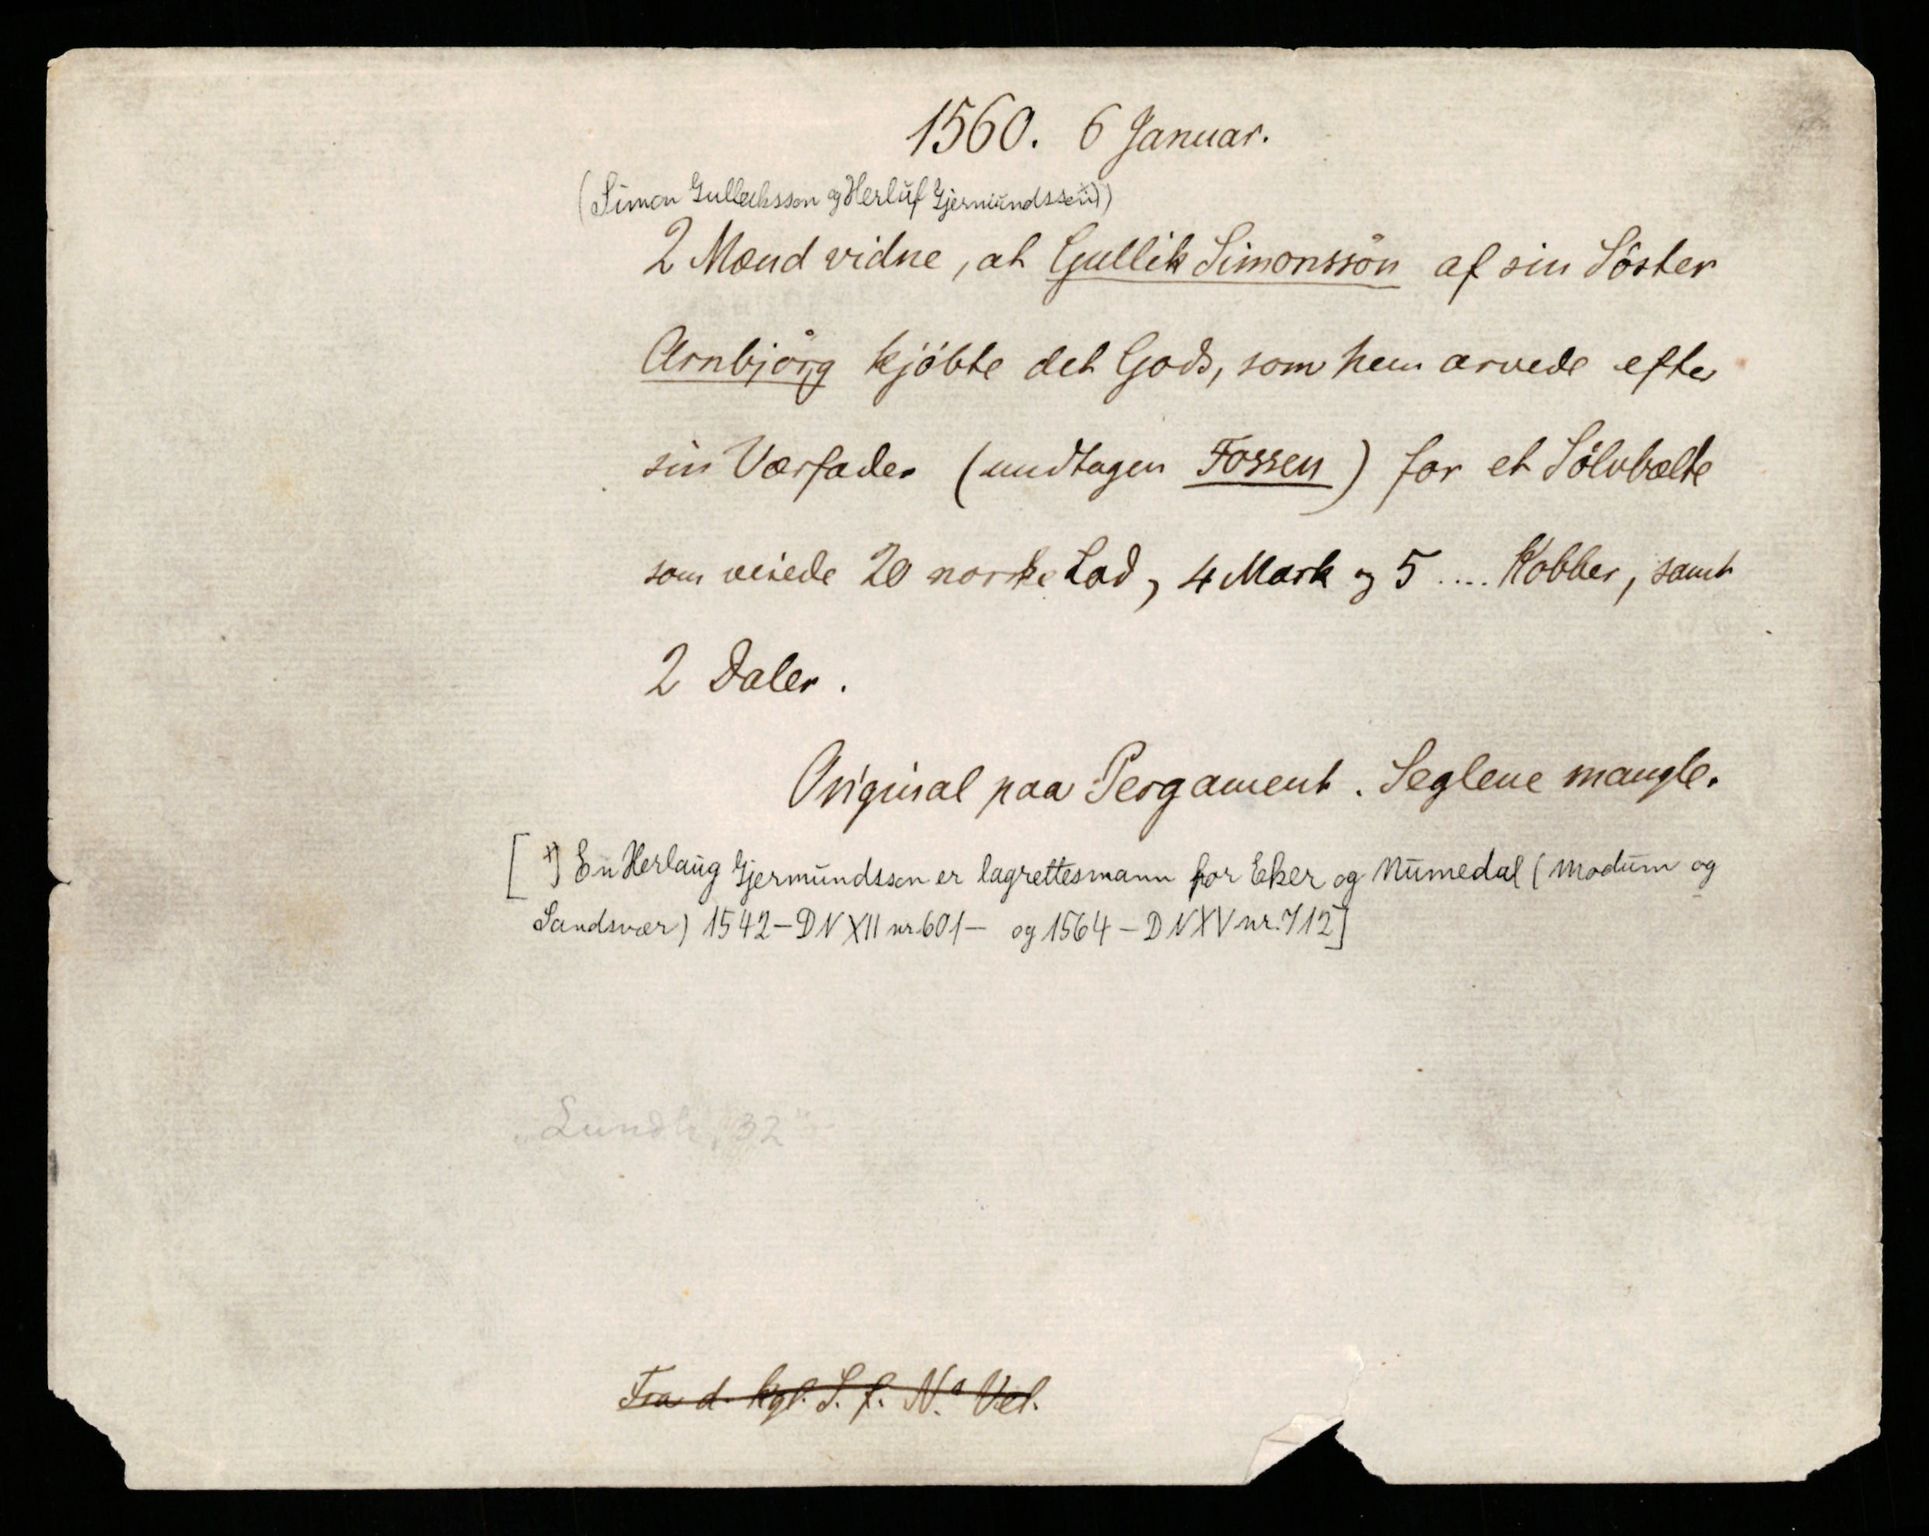 1560. 6 Januar.
(Simon Gulleiksson og Herluf Gjermundsson x))
2 Mænd vidne, at Gullik Simonssön af sin Söster
Arnbjörg kjöbte det Gods, som hun arvede efter
sin Værfader (undtagen Fossen) for et Sölvbælte
som veiede 20 norske Lod, 4 Mark og 5 .... Kobber, samt
2 Daler.
Original paa Pergament. Seglene mangle.
[x) En Herlaug Gjermundsson er lagrettesmann for Eker og Numedal (Modum og
Sandsvær) 1542 – DN XII nr. 601 – og 1564 – DN XV nr. 712]
"Lundh, 32"
Fra d. kgl. S. f. N.s Vel.